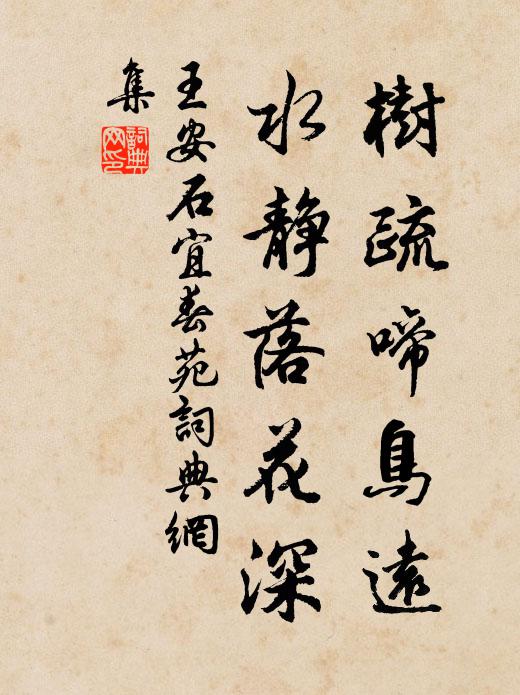 樹疏啼鳥遠
水静落花深
王安石宜春苑詞典網
集
詞典
网印